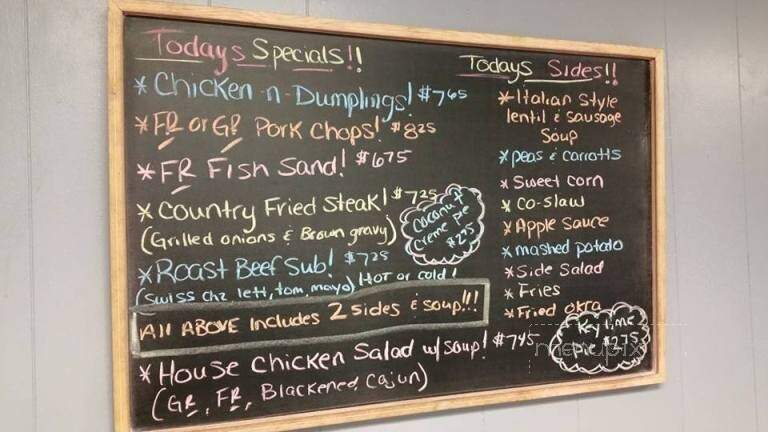 Todays Specials!!
* Chicken-n-Dumplings! $7.65
* FR or GR Pork Chops! $8.25
* FR Fish Sand! $6.75
* Country Fried Steak! $7.25
(Grilled onions & Brown gravy)
* Roast Beef Sub! $7.25
(Swiss chz, lett, tom, mayo) Hot or cold!
All ABOVE Includes 2 sides & soup!!!
* House Chicken Salad w/ soup! $7.45
(GR, FR, Blackened, Cajun)
Coconut
Creme Pie
$2.95
Todays Sides!!
* Italian Style
lentil & sausage
Soup
* peas & carrotts
* Sweet corn
* Co-slaw
* Apple Sauce
* mashed potato
* Side Salad
* Fries
* Fried okra
Key lime
Pie $2.75
menupix